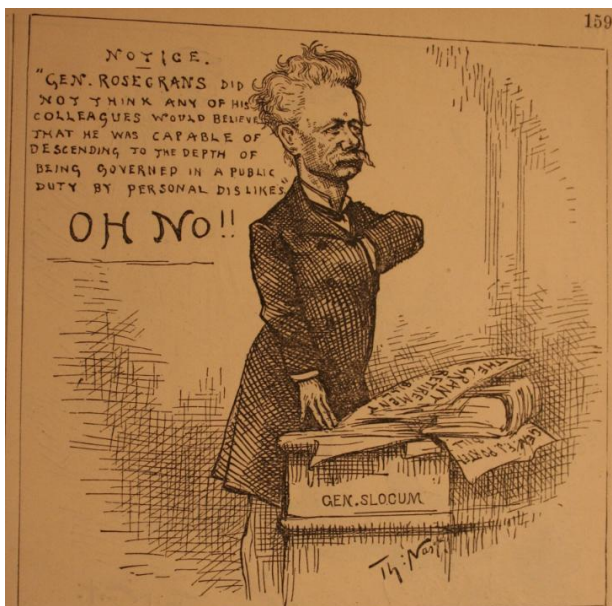 159
NOTICE.
"GEN. ROSECRANS DID
NOT THINK ANY OF HIS
COLLEAGUES WOULD BELIEVE
THAT HE WAS CAPABLE OF
DESCENDING TO THE DEPTH OF
BEING GOVERNED IN A PUBLIC
DUTY BY PERSONAL DISLIKES"
OH NO!!
THE GRANT
RETIREMENT
GEN. SLOCUM
Th: Nast.